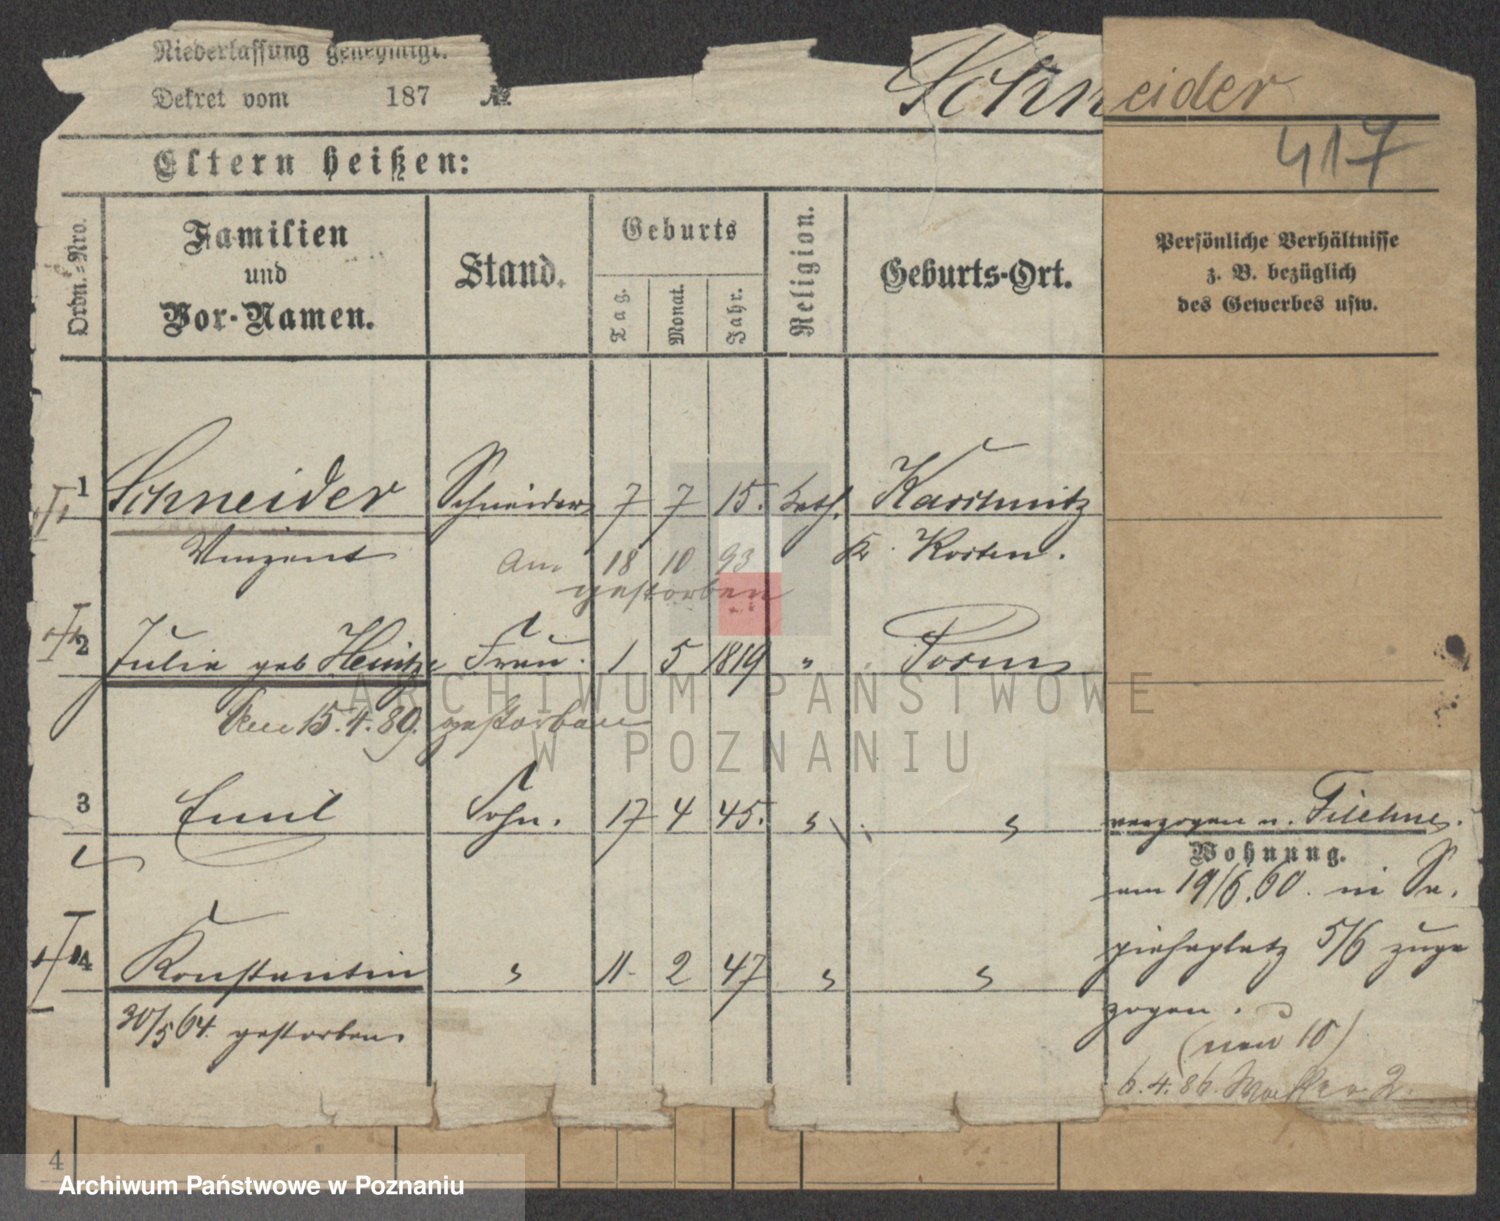 Niederlassung genehmigt.
Dekret vom 187 №
Schneider
417
Eltern heißen:
Ordn.=Nro.
Familien
und
Vor-Namen.
Stand.
Geburts
Tag.
Monat.
Jahr.
Religion.
Geburts-Ort.
Persönliche Verhältnisse
z. B. bezüglich
des Gewerbes usw.
1 Schneider Schneider 7 7 15. kath.
Vinzent Kr. Kosten.
am 18 10 93
gestorben
2 Julie geb Heintze Frau. 1 5 1819 " Posen
den 15.4.89. gestorben
3 Emil Sohn. 17 4 45. " "
verzogen n. Filehne.
Wohnung.
4 Konstantin " 11. 2 47 " "
30/5 64. gestorben.
am 19/6.60. in Sa-
piehaplatz 5/6 zuge
zogen.
(neu 10)
6.4.86. 2.
4
ARCHIWUM PAŃSTWOWE
W POZNANIU
Archiwum Państwowe w Poznaniu